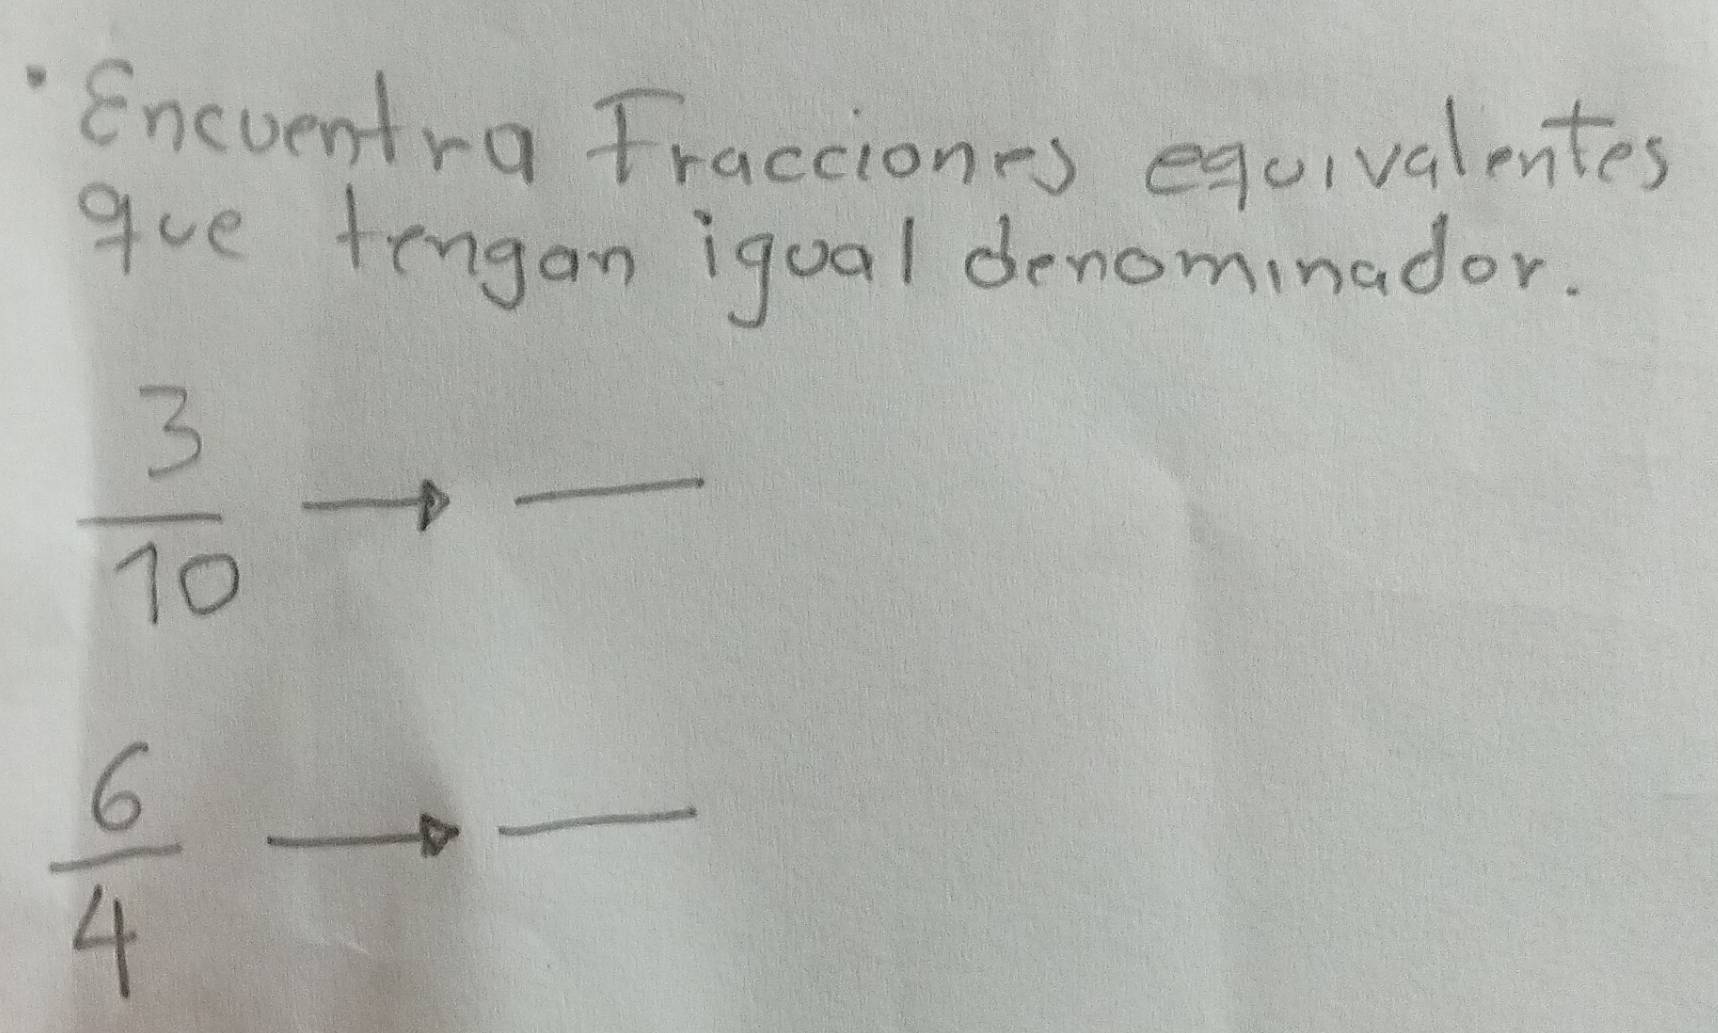 · Encuentra Fracciones equivalentes
que tengan igual denominador.
3
10
6
4